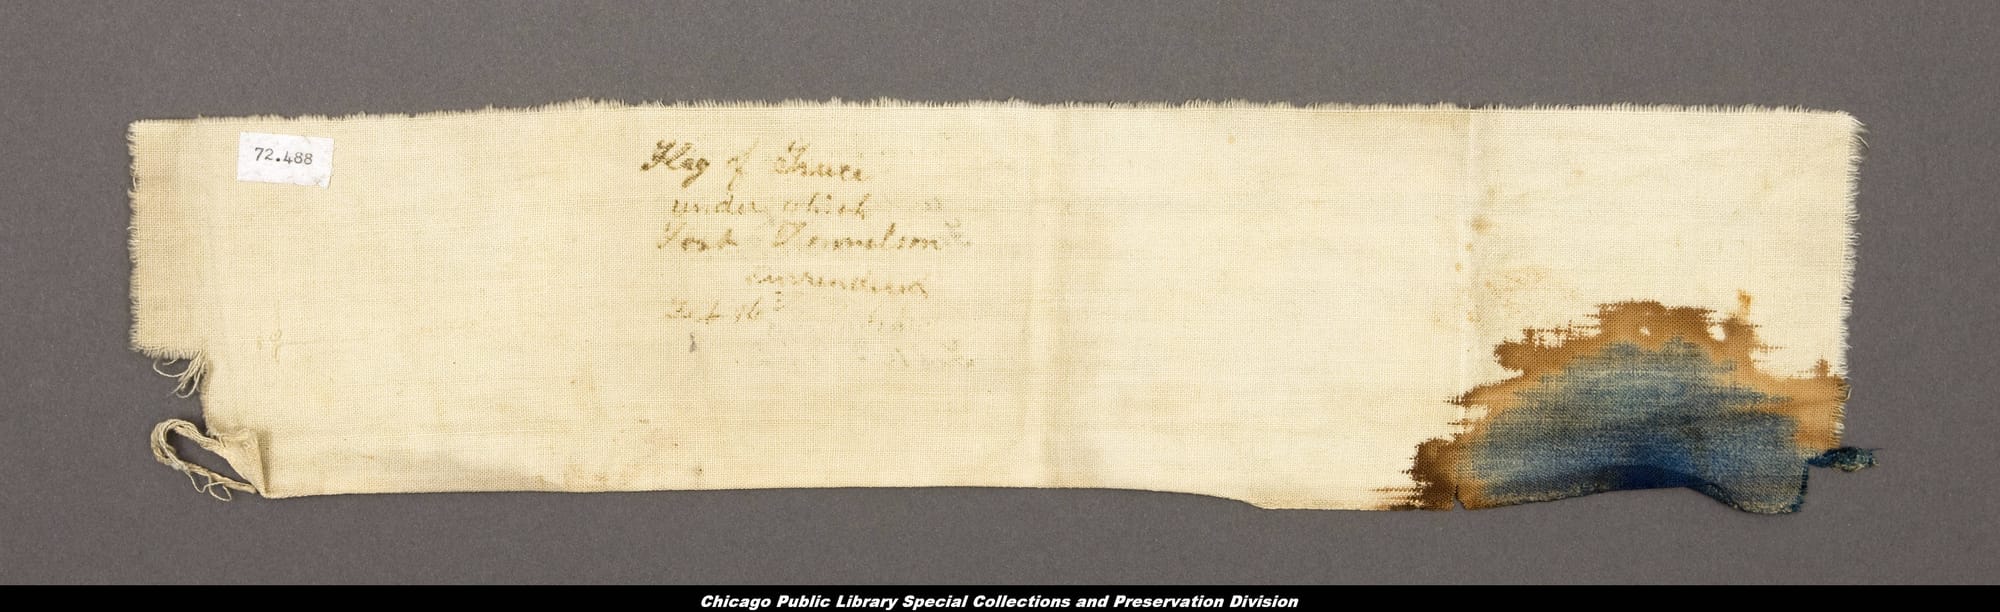 72.488
Flag of Truce
under which
Fort Donnelson
surrendered
Feb 16
Chicago Public Library Special Collections and Preservation Division